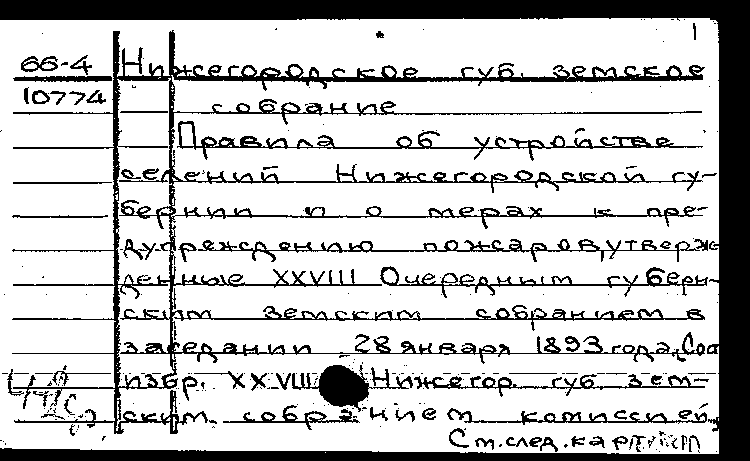 1
66-4 Нижегородское губ. земское
10774 собрание
Правила об устройстве
селений Нижегородской гу-
бернии и о мерах к пре-
дупреждению пожаров, утверж
денные XXVIII Очередным губерн-
ским земским собранием в
заседании 28 января 1893 года. Сост
избр. XXVIII Нижегор. губ. зем-
ским собранием комиссией,
См. след. карточки